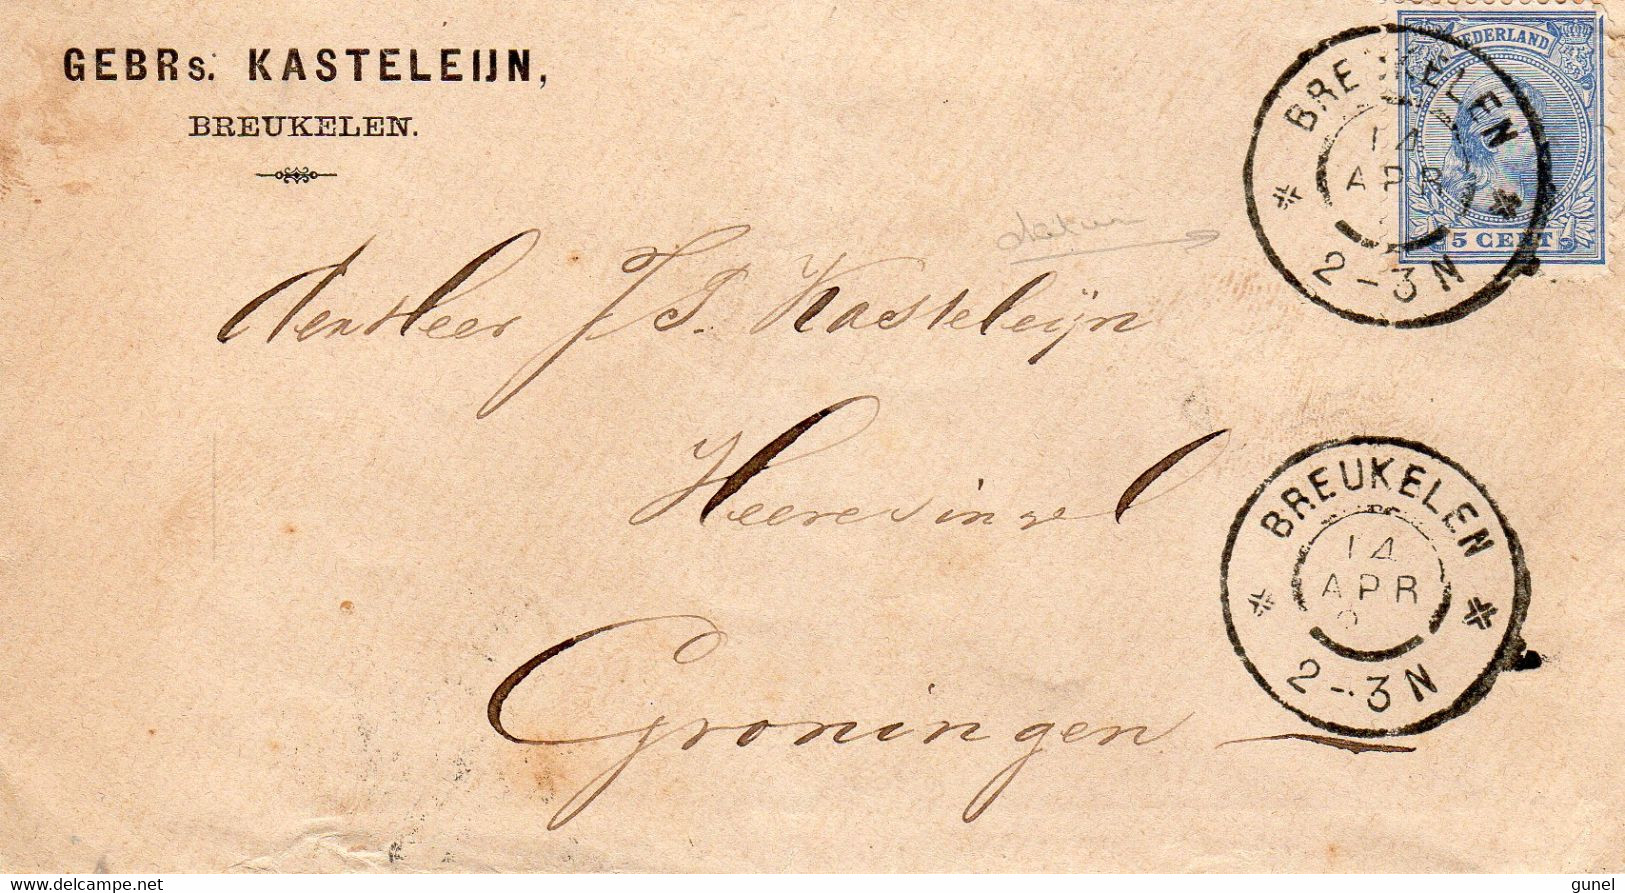 GEBRs. KASTELEIJN,
BREUKELEN.
NEDERLAND
5 CENT
BREUKELEN
14
APR
2-3N
datum
Den Heer J. S. Kasteleijn
Heeresingel
Groningen
BREUKELEN
14
APR
2-3N
delcampe.net
gunel